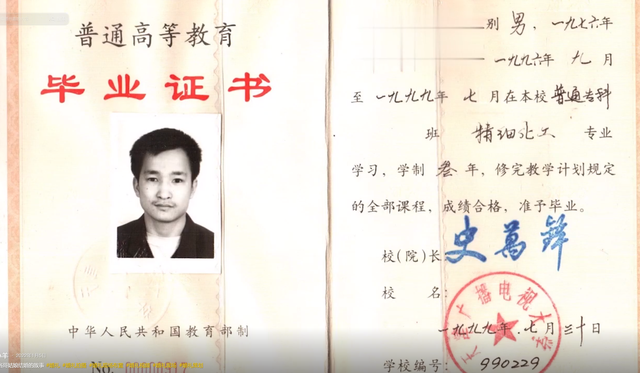 普通高等教育
毕业证书
中华人民共和国教育部制
No.
别 男，一九七六年
一九九六年 九 月
至 一九九九年 七 月在本校 普通专科
班 精细化工 专业
学习，学制 叁 年，修完教学计划规定
的全部课程，成绩合格，准予毕业。
校（院）长 史萬鋒
校 名：
广播电视大
一九九九年 七月 三十日
学校编号：990229